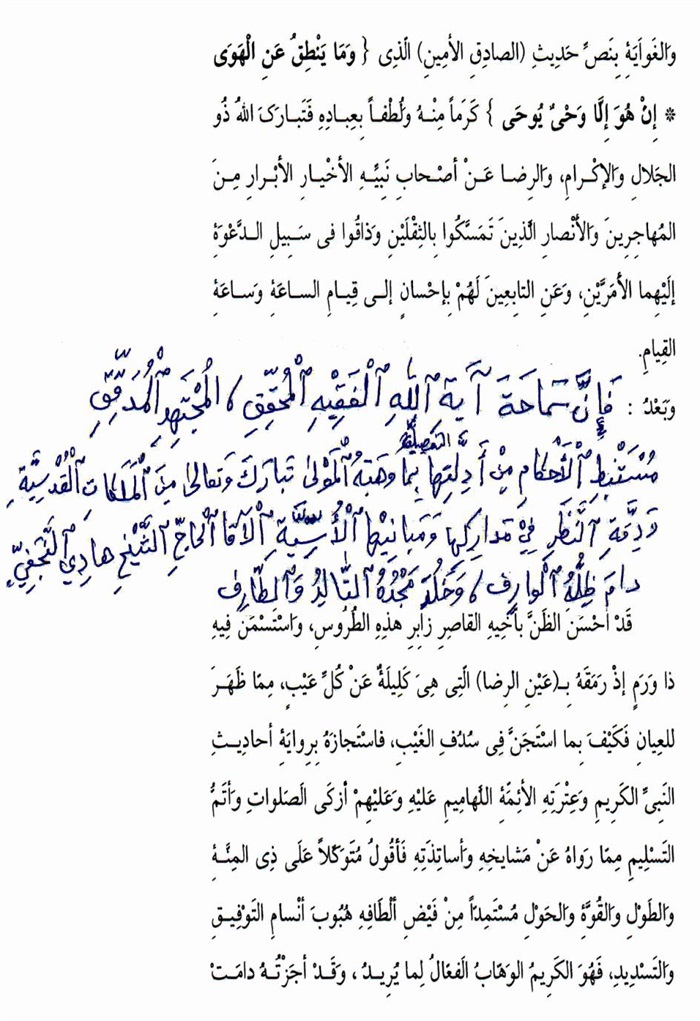 وَالغَوايَةِ بِنَصِّ حَدِيثِ (الصادِقِ الأمِينِ) الَّذِى { وَمَا يَنْطِقُ عَنِ الْهَوَى
* إِنْ هُوَ إِلَّا وَحْىٌ يُوحَى } كَرَماً مِنْهُ وَلُطْفاً بِعِبادِهِ فَتَبارَکَ اللهُ ذُو
الجَلالِ وَالإكْرامِ، وَالرِضا عَنْ أصْحابِ نَبِيِّهِ الأخْيارِ الأبْرارِ مِنَ
المُهاجِرِينَ وَالأنْصارِ الَّذِينَ تَمَسَّكُوا بِالثِقْلَيْنِ وَذاقُوا فى سَبِيلِ الدَّعْوَةِ
إلَيْهِما الأمَرَّيْنِ، وَعَنِ التابِعِينَ لَهُمْ بِإحْسانٍ إلى قِيامِ الساعَةِ وَساعَةِ
القِيامِ.
وَبَعْدُ : فَإِنَّ سَمَاحَةَ آيَةِ ٱللهِ ٱلْفَقِيْهِ ٱلْمُحَقِّقِ، الْمُجْتَهِدِ ٱلْمُدَقِّقِ
مُسْتَنْبِطِ ٱلْأَحْكامِ مِنْ أَدِلَّتِها التفصيليَّة بِما وَهَبَهُ ٱلْمَوْلىٰ تَبارَكَ وَتَعالىٰ مِنَ ٱلْمَلَكاتِ ٱلْقُدْسِيَّةِ
وَدِقَّةِ ٱلنَّظَرِ فِيْ مَدارِكِها وَمَبانِيْها ٱلْأُسِّيَّةِ ٱلْآقا ٱلْحاجِّ ٱلشَّيْخِ هادِي ٱلنَّجَفِيِّ
دامَ ظِلُّهُ ٱلْوارِف، وَخُلِّدَ مَجْدُهُ ٱلتّالِدُ وَٱلطّارِف
قَدْ أحْسَنَ الظَّنَّ بأخِيهِ القاصِرِ زابِرِ هذِهِ الطُرُوسِ، وَاسْتَسْمَنَ فِيهِ
ذا وَرَمٍ إذْ رَمَقَهُ بِـ(عَيْنِ الرِضا) الَّتِى هِىَ كَلِيلَةٌ عَنْ كُلِّ عَيْبٍ، مِمّا ظَهَرَ
للعِيانِ فَكَيْفَ بِما اسْتَجَنَّ فِى سُدُفِ الغَيْبِ، فاسْتَجازَهُ بِرِوايَةِ أحادِيثِ
النَبِىِّ الكَرِيمِ وَعِتْرَتِهِ الأئِمَّةِ اللَّهامِيمِ عَلَيْهِ وَعَلَيْهِمْ أزكَى الصَلَواتِ وَأتَمُّ
التَسْلِيمِ مِمّا رَواهُ عَنْ مَشايخِهِ وَأساتِذَتِهِ فَأقُولُ مُتَوَكِّلاً عَلَى ذِى المِنَّةِ
وَالطَوْلِ وَالقُوَّةِ وَالحَوْلِ مُسْتَمِدّاً مِنْ فَيْضِ ألْطافِهِ هُبُوبَ أنْسامِ التَوْفِيقِ
وَالتَسْدِيدِ، فَهُوَ الكَرِيمُ الوَهّابُ الفَعّالُ لِما يُرِيدُ ، وَقَدْ أجَزْتُهُ دامَتْ